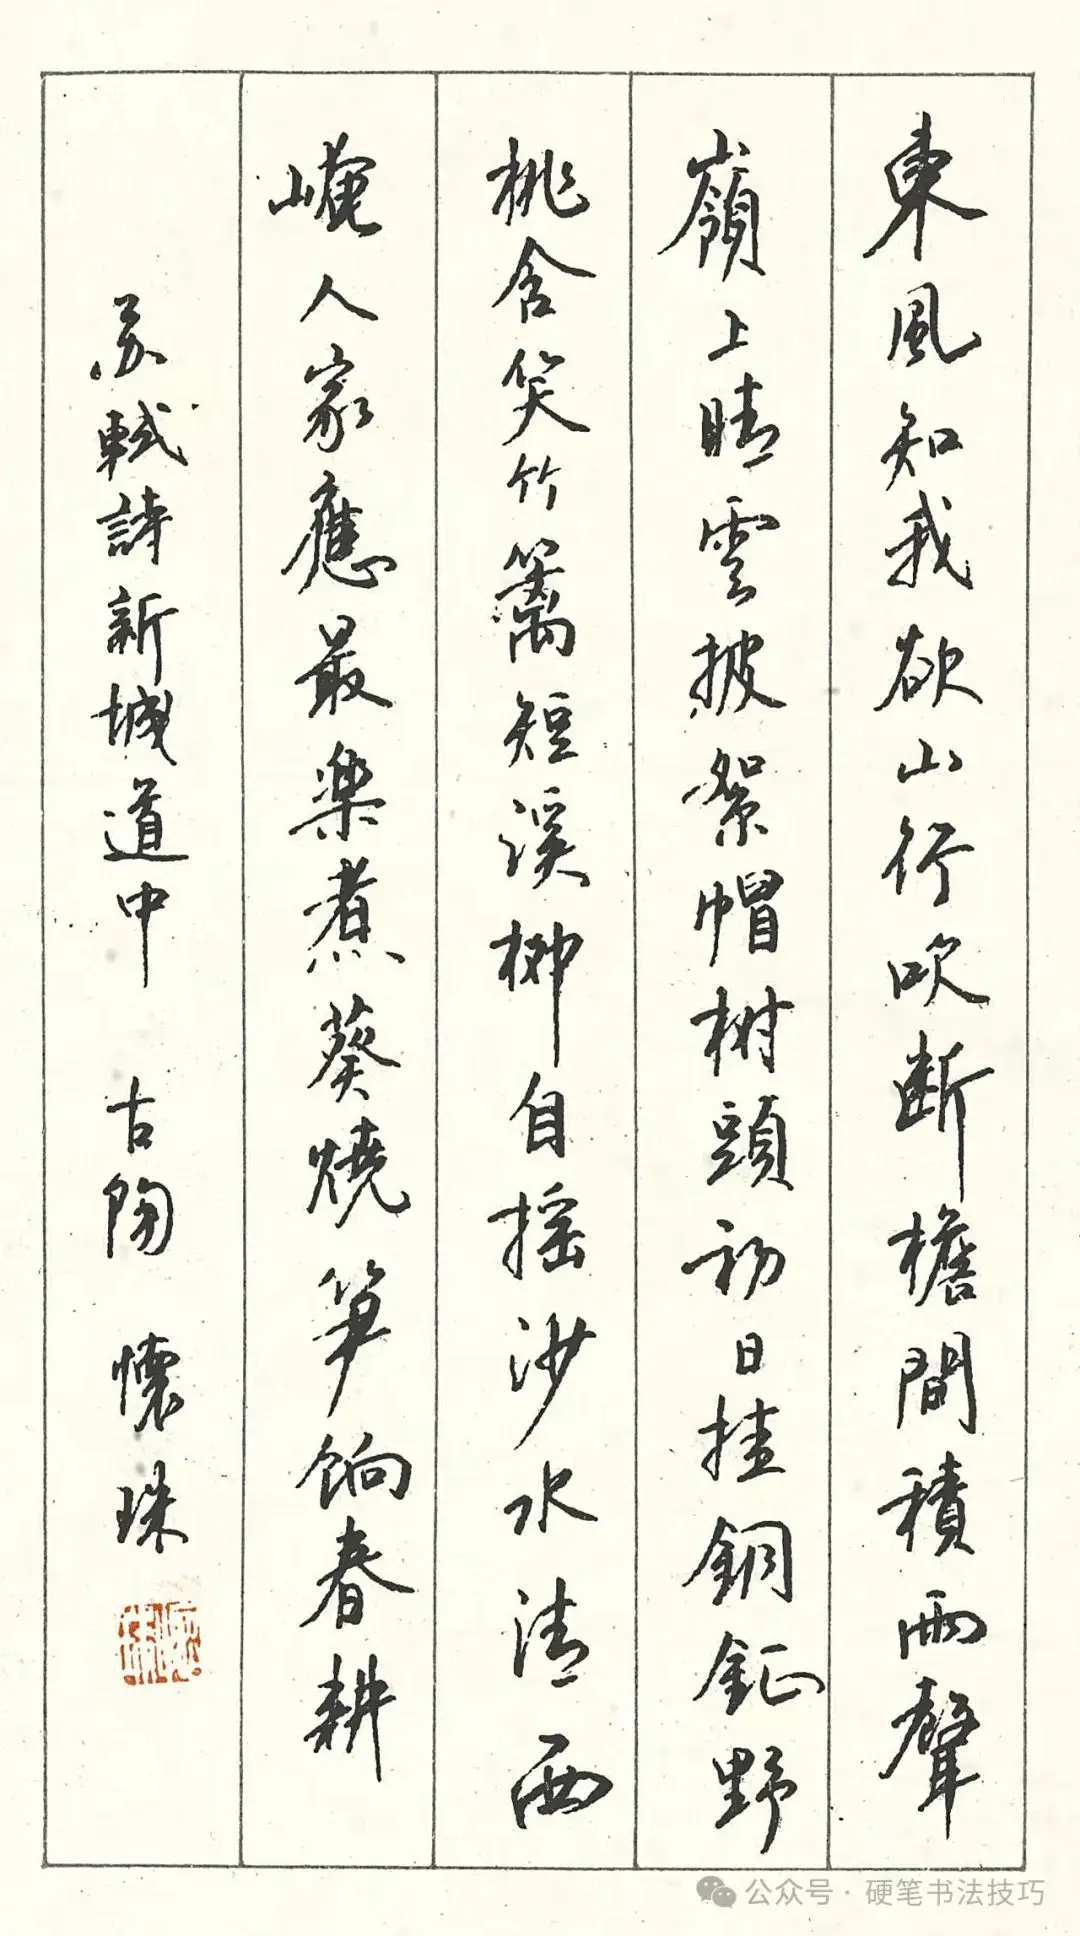 東風知我欲山行吹断檐間積雨聲
嶺上晴雲披絮帽樹頭初日挂銅鉦野
桃含笑竹籬短溪柳自摇沙水清西
崦人家應最樂煮葵燒笋餉春耕
蘇軾詩新城道中 古陶 懷珠
公众号·硬笔书法技巧